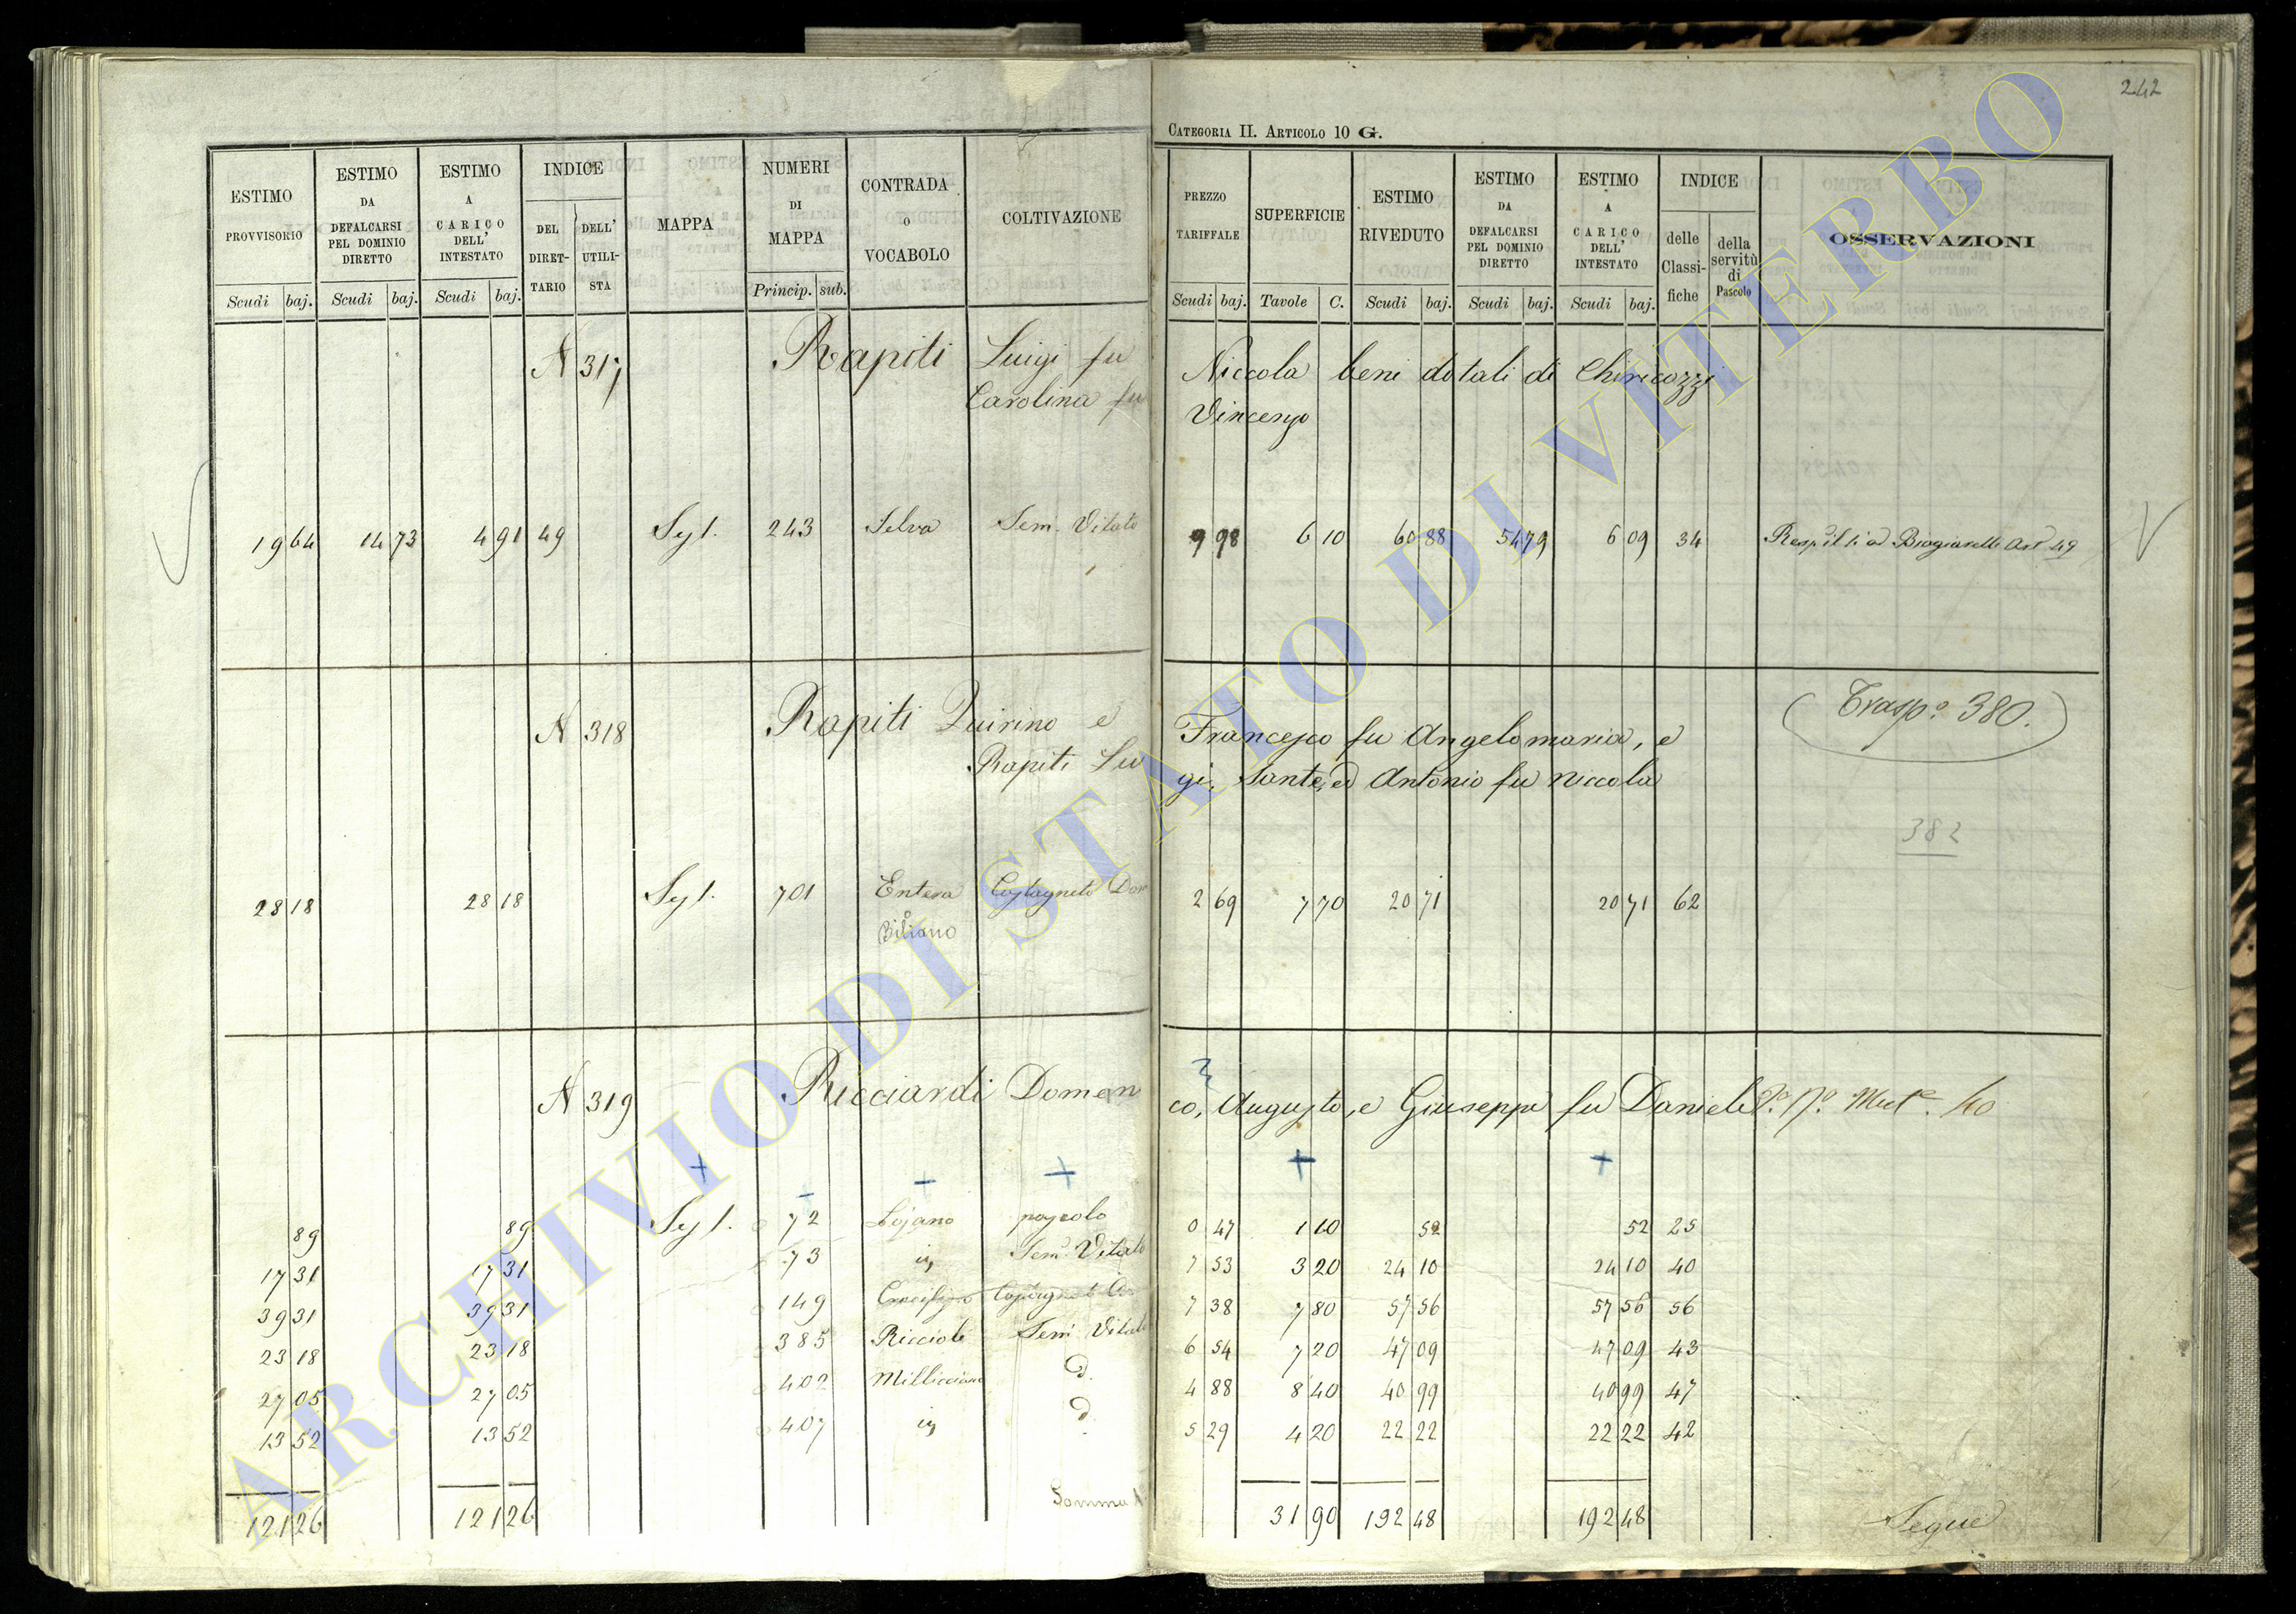 242
CATEGORIA II. ARTICOLO 10 G.
ESTIMO PROVVISORIO Scudi baj.
ESTIMO DA DEFALCARSI PEL DOMINIO DIRETTO Scudi baj.
ESTIMO A CARICO DELL' INTESTATO Scudi baj.
INDICE DEL DIRETTARIO DELL' UTILISTA
MAPPA
NUMERI DI MAPPA Princip. sub.
CONTRADA O VOCABOLO
COLTIVAZIONE
PREZZO TARIFFALE Scudi baj.
SUPERFICIE Tavole C.
ESTIMO RIVEDUTO Scudi baj.
ESTIMO DA DEFALCARSI PEL DOMINIO DIRETTO Scudi baj.
ESTIMO A CARICO DELL' INTESTATO Scudi baj.
INDICE delle Classifiche della servitù di Pascolo
OSSERVAZIONI
N 317 Rapiti Luigi fu Niccola beni dotali di Chiricozzi
Carolina fu Vincenzo
19 64 14 73 4 91 49 Sez. 1. 243 Selva Sem. Vitato 9 98 6 10 60 88 54 79 6 09 34 ad Biagiarelli Art 49
(Trasp.o 380.)
N 318 Rapiti Quirino e Francesco fu Angelomaria, e
Rapiti Luigi, Sante, ed Antonio fu Niccola
382
28 18 28 18 Sez. 1. 701 Castagneto 2 69 7 70 20 71 20 71 62
N 319 Ricciardi Domenico, Augusto, e Giuseppe fu Daniele 40
89 89 Sez. 1. 72 Lojano pascolo 0 47 1 10 52 52 25
17 31 17 31 73 Sem. Vitato 7 53 3 20 24 10 24 10 40
39 31 39 31 149 7 38 7 80 57 56 57 56 56
23 18 23 18 385 Riccioli Sem. Vitato 6 54 7 20 47 09 47 09 43
27 05 27 05 402 Millicciano 4 88 8 40 40 99 40 99 47
13 52 13 52 407 5 29 4 20 22 22 22 22 42
121 26 121 26 Somma 31 90 192 48 192 48 Segue
ARCHIVIO DI STATO DI VITERBO